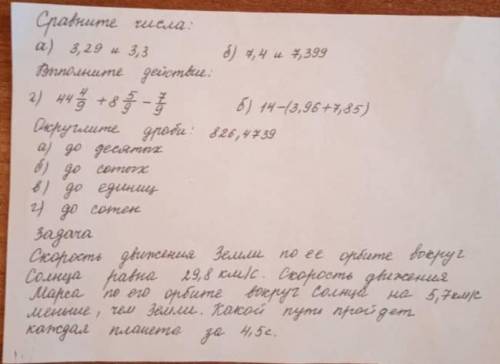 Сравните числа:
а) 3,29 и 3,3 б) 7,4 и 7,399
Выполните действие:
г) 44 4/9 + 8 5/9 - 7/9 б) 14-(3,96+7,85)
Округлите дроби: 826,4739
а) до десятых
б) до сотых
в) до единиц
г) до сотен
Задача
Скорость движения Земли по ее орбите вокруг
Солнца равна 29,8 км/с. Скорость движения
Марса по его орбите вокруг Солнца на 5,7 км/с
меньше, чем Земли. Какой путь пройдет
каждая планета за 4,5с.